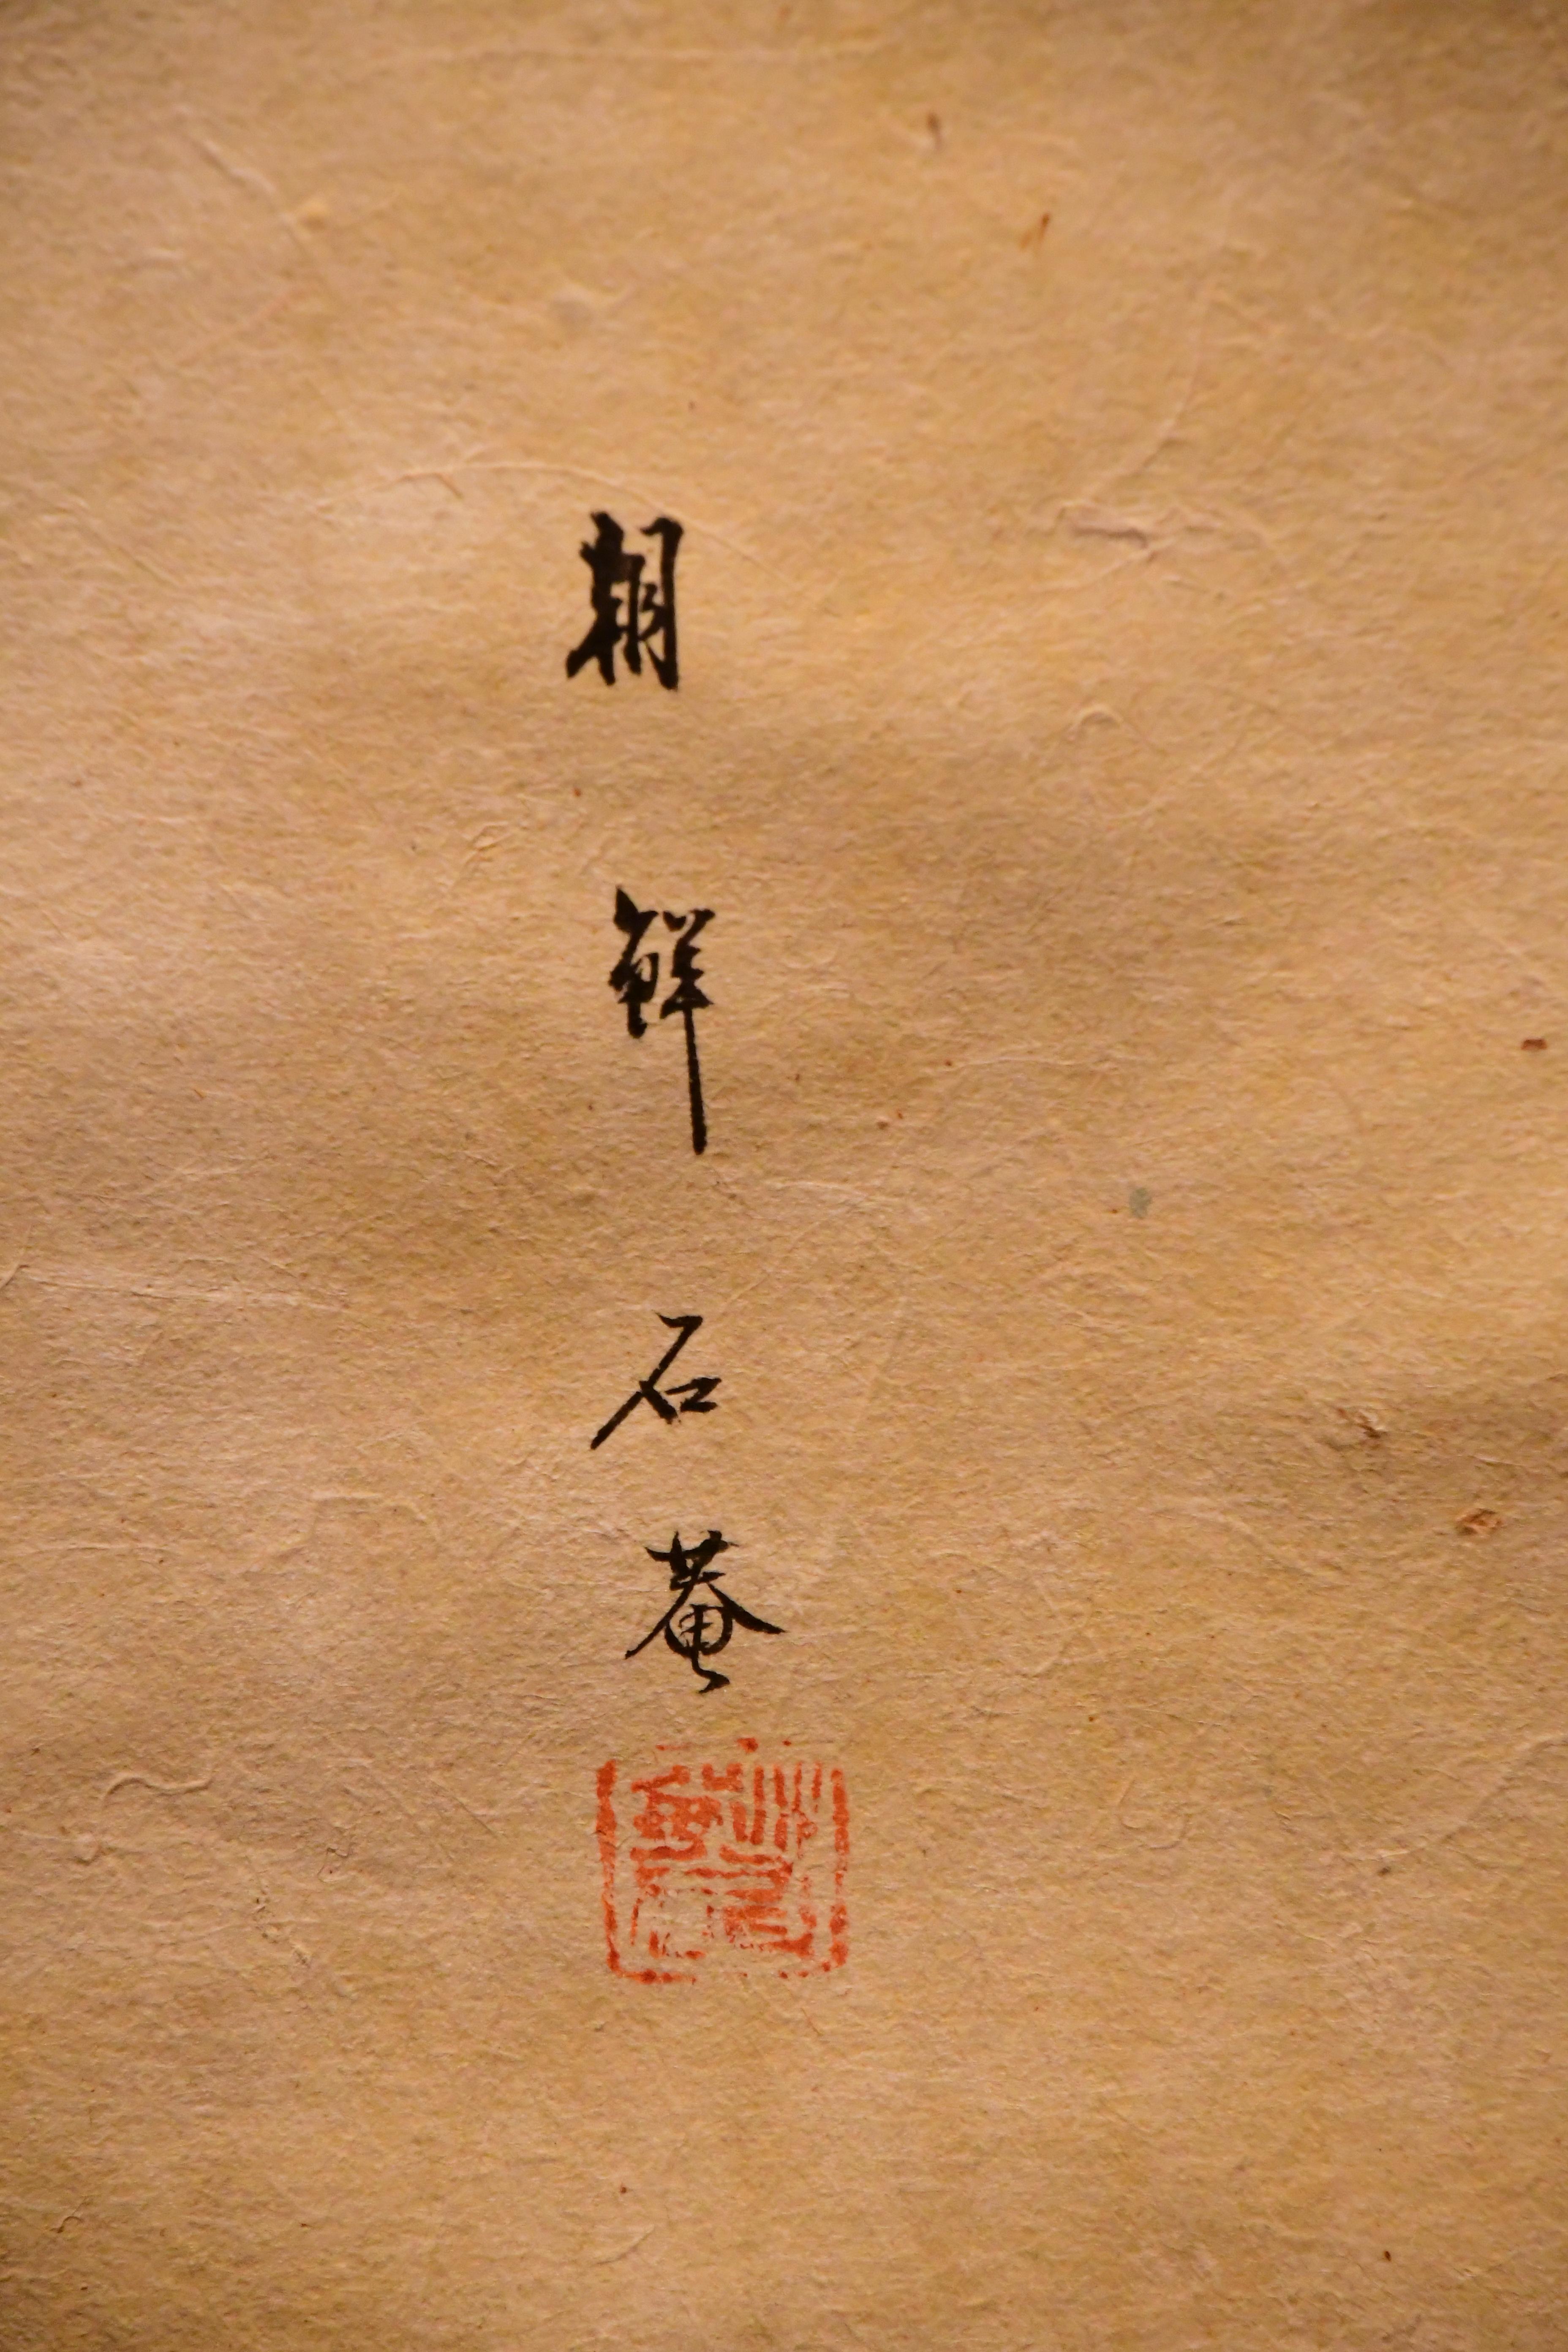 朝鮮石菴